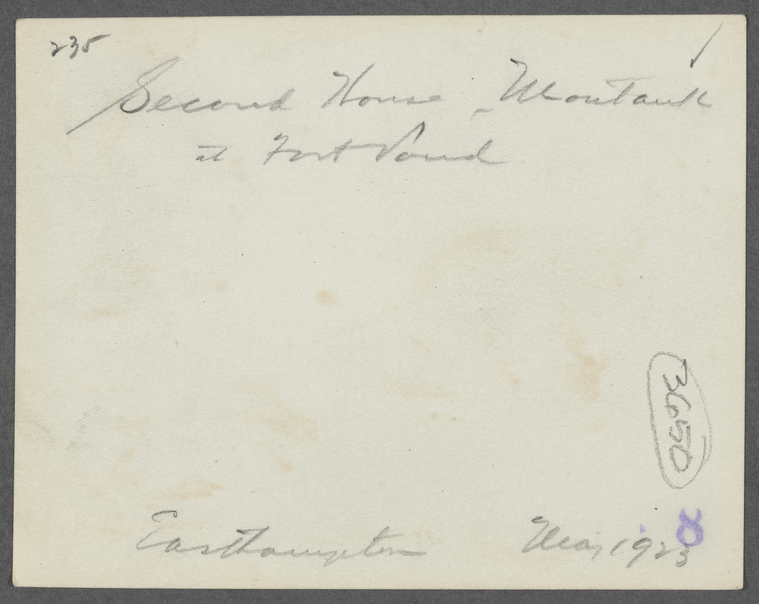 235
Second House, Montauk
at Fort Pond
3650
Easthampton May 1923